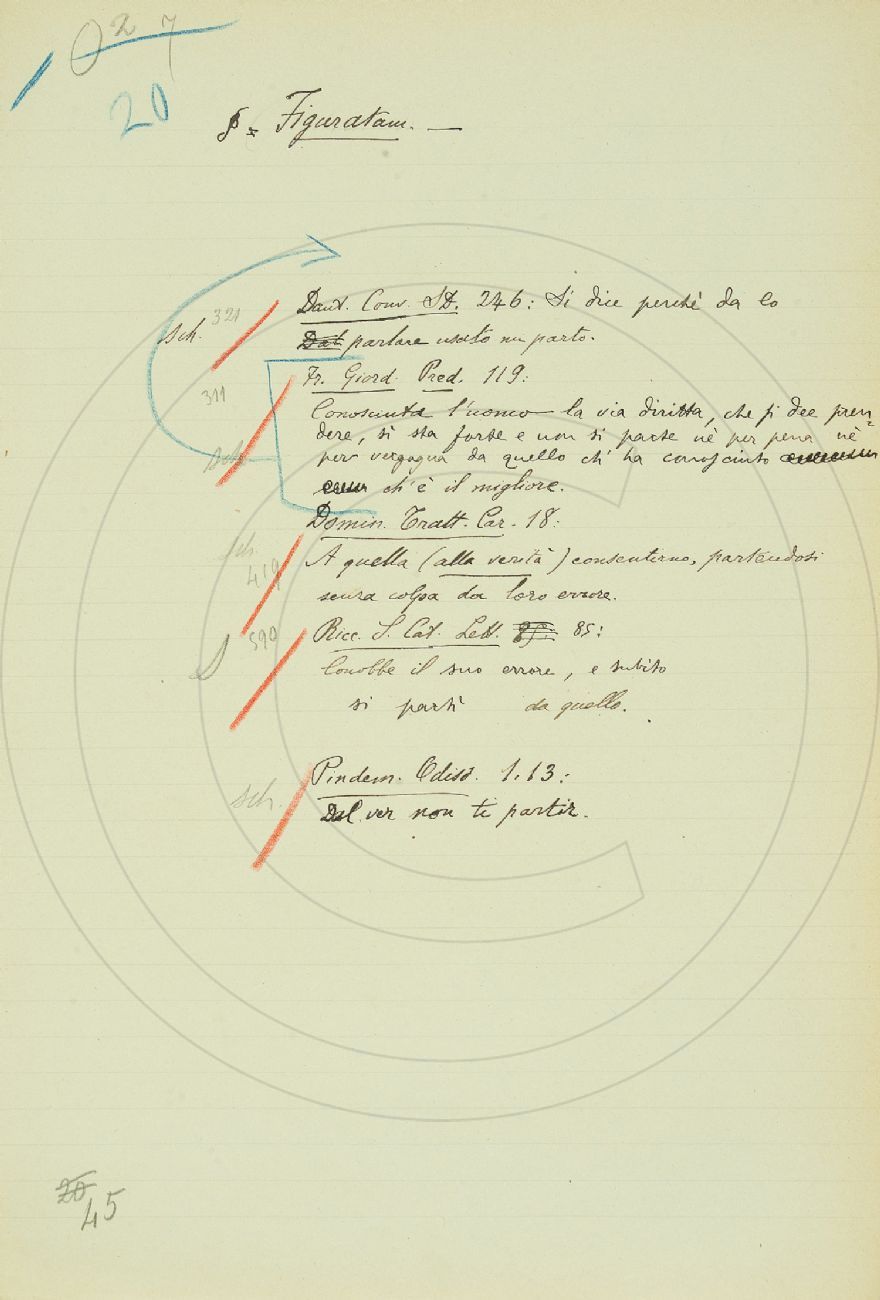 27
20
§ = Figuratam. —
Dant. Conv. SD. 246: Si dice perchè da lo
sch. 321
Dal parlare usato mi parto.
Fr. Giord. Pred. 119:
311
Conosciuta l'uomo la via diritta, che si dee pren=
dere, si sta forte e non si parte nè per pena nè
per vergogna da quello ch'ha conosciuto
ch'è il migliore.
Domin. Tratt. Car. 18:
sch. 419
A quella (alla verità) consentirno, partendosi
senza colpa da loro errore.
S 590
Ricc. S. Cat. Lett. 85:
Conobbe il suo errore, e subito
si partì da quello.
Pindem. Odiss. 1.13:
sch.
Dal ver non ti partir.
20
45